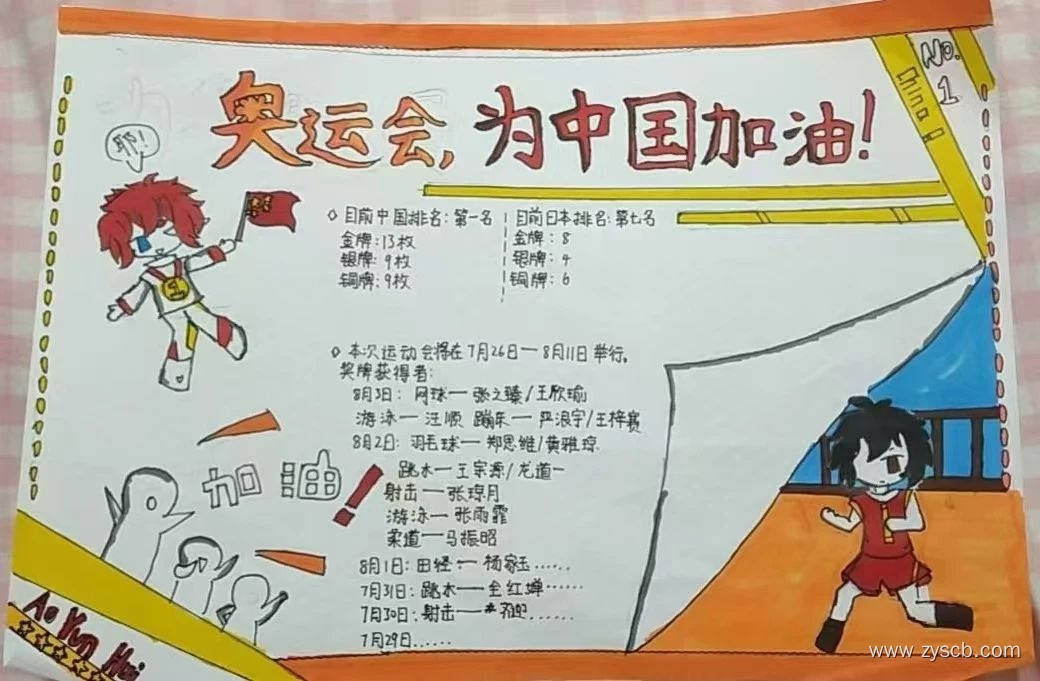 奥运会,为中国加油!
No.
1
China
耶!
1
◇目前中国排名:第一名
金牌:13枚
银牌:9枚
铜牌:9枚
目前日本排名:第七名
金牌:8
银牌:4
铜牌:6
◇本次运动会将在7月26日一8月11日举行。
奖牌获得者:
8月3日:网球一张之臻/王欣瑜
游泳一汪顺 蹦床一严浪宇/王梓赛
8月2日:羽毛球一郑思维/黄雅琼
跳水一王宗源/龙道一
射击一张琼月
游泳一张雨霏
柔道一马振昭
8月1日:田径一杨家玉……
7月31日:跳水一全红婵……
7月30日:射击一……
7月29日……
加油!
Ao Yun Hui
www.zyscb.com